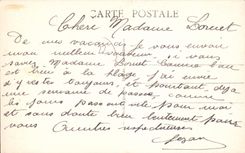 CARTE POSTALE
Chère Madame Bonnet
De mes vacances je vous envoie
mon meilleur si vous
savez, Madame Bonnet comme l'on
est bien à la plage j'ai envie
d'y rester toujours, et pourtant déjà
une semaine de passée, comme
les jours passent vite pour moi
et sans doute bien lentement pour
vous